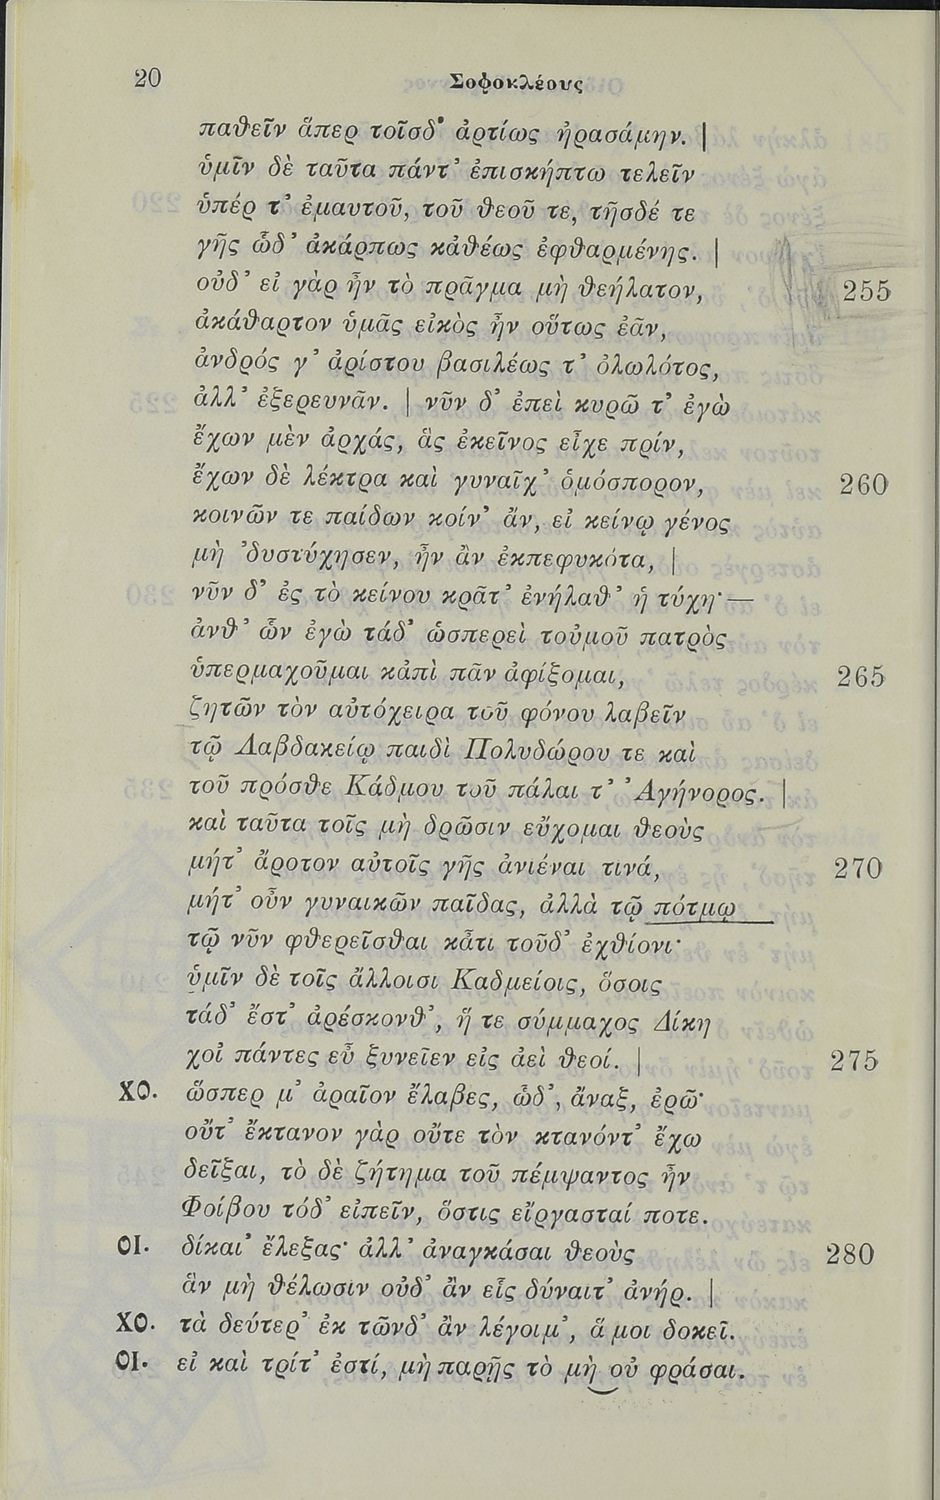 20 Σοφοκλέους
παθεῖν ἅπερ τοῖσδ’ ἀρτίως ἠρασάμην. |
ὑμῖν δὲ ταῦτα πάντ’ ἐπισκήπτω τελεῖν
ὑπέρ τ’ ἐμαυτοῦ, τοῦ θεοῦ τε, τῆσδέ τε
γῆς ὧδ’ ἀκάρπως κἀθέως ἐφθαρμένης. |
οὐδ’ εἰ γὰρ ἦν τὸ πρᾶγμα μὴ θεήλατον, 255
ἀκάθαρτον ὑμᾶς εἰκὸς ἦν οὕτως ἐᾶν,
ἀνδρός γ’ ἀρίστου βασιλέως τ’ ὀλωλότος,
ἀλλ’ ἐξερευνᾶν. | νῦν δ’ ἐπεὶ κυρῶ τ’ ἐγὼ
ἔχων μὲν ἀρχάς, ἃς ἐκεῖνος εἶχε πρίν,
ἔχων δὲ λέκτρα καὶ γυναῖχ’ ὁμόσπορον, 260
κοινῶν τε παίδων κοίν’ ἄν, εἰ κείνῳ γένος
μὴ ’δυστύχησεν, ἦν ἂν ἐκπεφυκότα, |
νῦν δ’ ἐς τὸ κείνου κρᾶτ’ ἐνήλαθ’ ἡ τύχη· —
ἀνθ’ ὧν ἐγὼ τάδ’ ὡσπερεὶ τοὐμοῦ πατρὸς
ὑπερμαχοῦμαι κἀπὶ πᾶν ἀφίξομαι, 265
ζητῶν τὸν αὐτόχειρα τοῦ φόνου λαβεῖν
τῷ Λαβδακείῳ παιδὶ Πολυδώρου τε καὶ
τοῦ πρόσθε Κάδμου τοῦ πάλαι τ’ Ἀγήνορος. |
καὶ ταῦτα τοῖς μὴ δρῶσιν εὔχομαι θεοὺς
μήτ’ ἄροτον αὐτοῖς γῆς ἀνιέναι τινά, 270
μήτ’ οὖν γυναικῶν παῖδας, ἀλλὰ τῷ πότμῳ
τῷ νῦν φθερεῖσθαι κἄτι τοῦδ’ ἐχθίονι·
ὑμῖν δὲ τοῖς ἄλλοισι Καδμείοις, ὅσοις
τάδ’ ἔστ’ ἀρέσκονθ’, ἥ τε σύμμαχος Δίκη
χοἰ πάντες εὖ ξυνεῖεν εἰς ἀεὶ θεοί. | 275
ΧΟ. ὥσπερ μ’ ἀραῖον ἔλαβες, ὧδ’, ἄναξ, ἐρῶ·
οὔτ’ ἔκτανον γὰρ οὔτε τὸν κτανόντ’ ἔχω
δεῖξαι, τὸ δὲ ζήτημα τοῦ πέμψαντος ἦν
Φοίβου τόδ’ εἰπεῖν, ὅστις εἴργασταί ποτε.
ΟΙ. δίκαι’ ἔλεξας· ἀλλ’ ἀναγκάσαι θεοὺς 280
ἃν μὴ θέλωσιν οὐδ’ ἂν εἷς δύναιτ’ ἀνήρ. |
ΧΟ. τὰ δεύτερ’ ἐκ τῶνδ’ ἂν λέγοιμ’, ἅ μοι δοκεῖ.
ΟΙ. εἰ καὶ τρίτ’ ἐστί, μὴ παρῇς τὸ μὴ οὐ φράσαι.